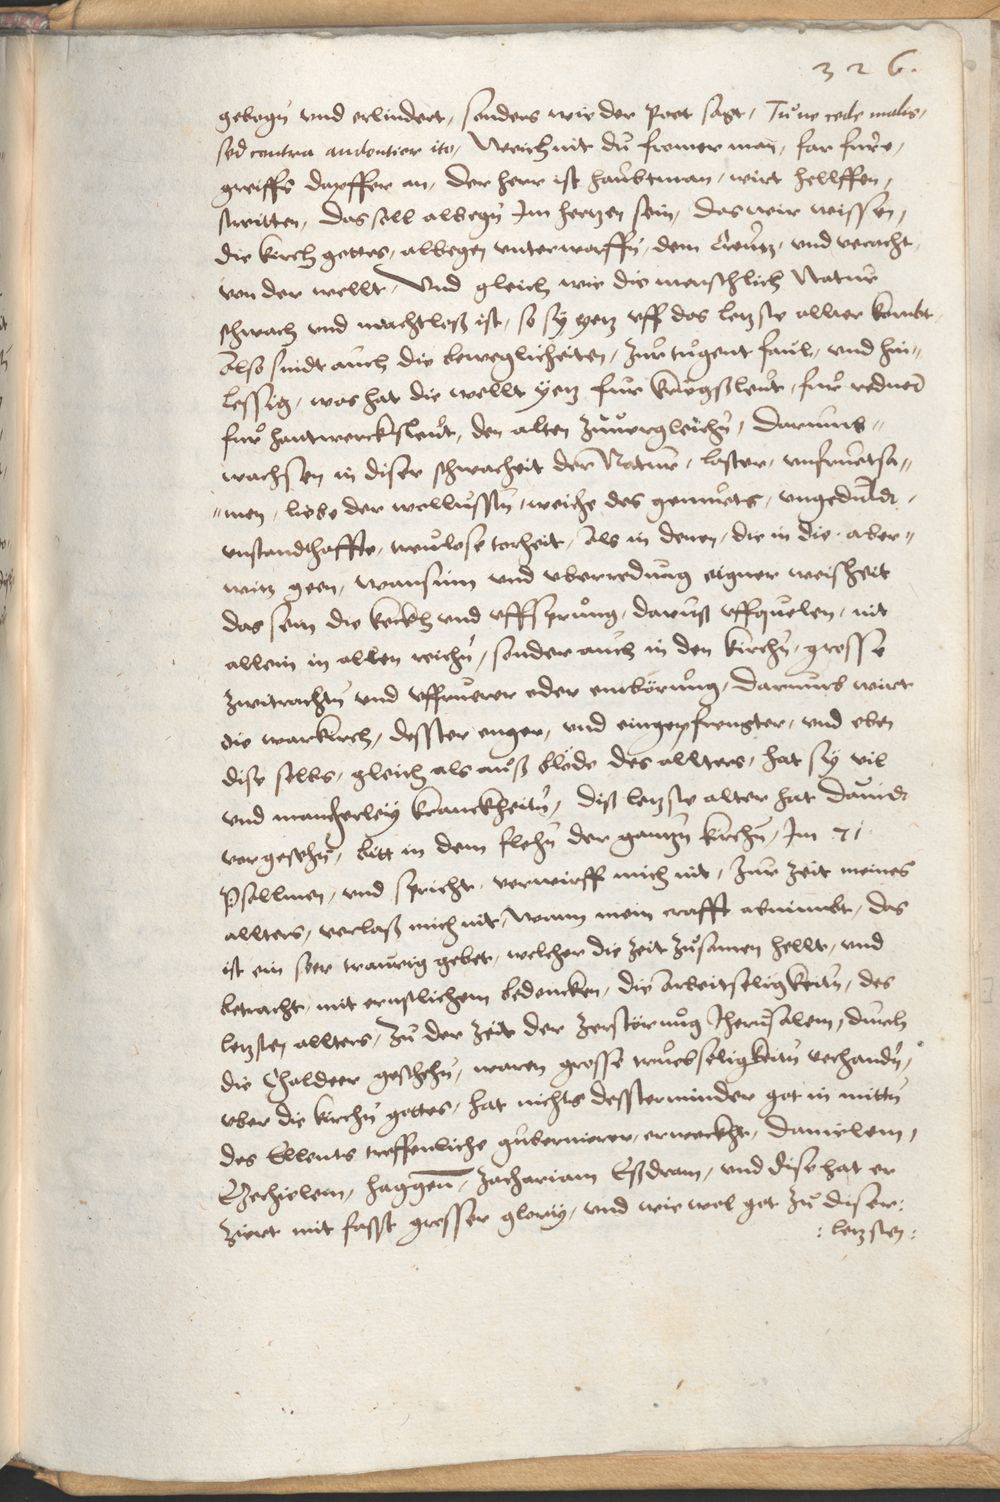 326.
gebogn vnd erlindert, sonders wie der Poet sagt, Tu ne cede malis,
sed contra audentior ito, Weich nit du fromer man, far fure,
greiffs dapffer an, der herr ist haubtman, wirt hellffen,
streitten, das soll albegn Im hertzen sein, das wir wissen,
die kirch gottes, albegen vnterworffn, dem Creutz, vnd veracht,
von der wellt, Vnd gleich wie die menschlich Natur
schwach vnd machtloß ist, so sy yetz vff das letzste allter kombt,
Also sindt auch die beweglicheiten, zur tugent faul, vnd hin„
lessig, was hat die wellt yetz fur kriegßleut, fur redner
fur hantwercksleut, den alten zuuergleichn, darumb„
wachsen in diser schwacheit der Natur, laster, vnfruetsa„
„men, liebe der wollussten, weiche des gemuets, vngeduldt,
vnstandthaffte, treulose torheit, Als in denen, die in die aber„
witz geen, wansinn vnd vberredung eigner weisheit
das sein die keckh vnd vffsprung, daruß vffquelen, nit
allein in allen reichn, sonder auch in den kirchn, grosse
zwitrachtn vnd vffruerer oder emborung, darumb wirt
die warkirch, desster enger, vnd eingepfrengter, vnd eben
dise selbs, gleich als auß blode des allters, hat sy vil
vnd mancherley kranckheitn, diß letzste alter hat Dauidt
vorgesehn, bitt in dem flehn der gantzn kirchn, Im 71
Psallmen, vnd spricht, verwirff mich nit, zur zeit meines
allters, verlaß mich nit, Wann mein crafft abnimbt, das
ist ein seer traurig gebet, welcher die zeit zusamen hellt, vnd
betracht, mit ernstlichem bedencken, die Arbeitseligkeitn, des
letzsten allters, Zu der zeit der zerstorung Jherusalem, durch
die Chaldeer geschehn, waren grosse truebseligkeitn verhandn,
vber die kirchn gottes, hat nichts dessterminder got in mittn
des Ellents treffenliche gubernierer, erweckht, Danielem,
Ezechielem, Haggeu, Zachariam Eßdram, vnd dise hat er
ziert mit fasst grosser glory, vnd wie wol got zu diser:
: letzsten: